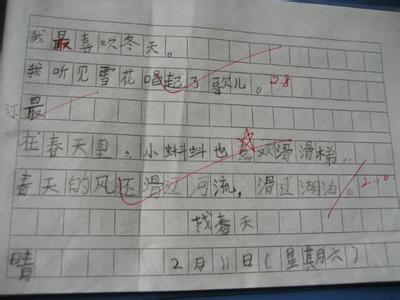 我最喜欢冬天。
我听见雪花唱起了歌儿。2.8
最
在春天里,小蝌蚪也喜欢滑滑梯..
春天的风还滑过河流,滑过湖泊。2.10.
找春天
晴 2月11日(星期六)